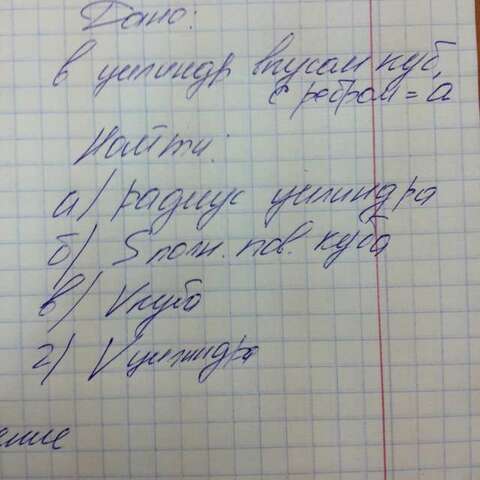 Дано:
в цилиндр вписан куб,
с ребром = а
Найти:
а) радиус цилиндра
б) S полн. пов. куба
в) V куба
г) V цилиндра
ение